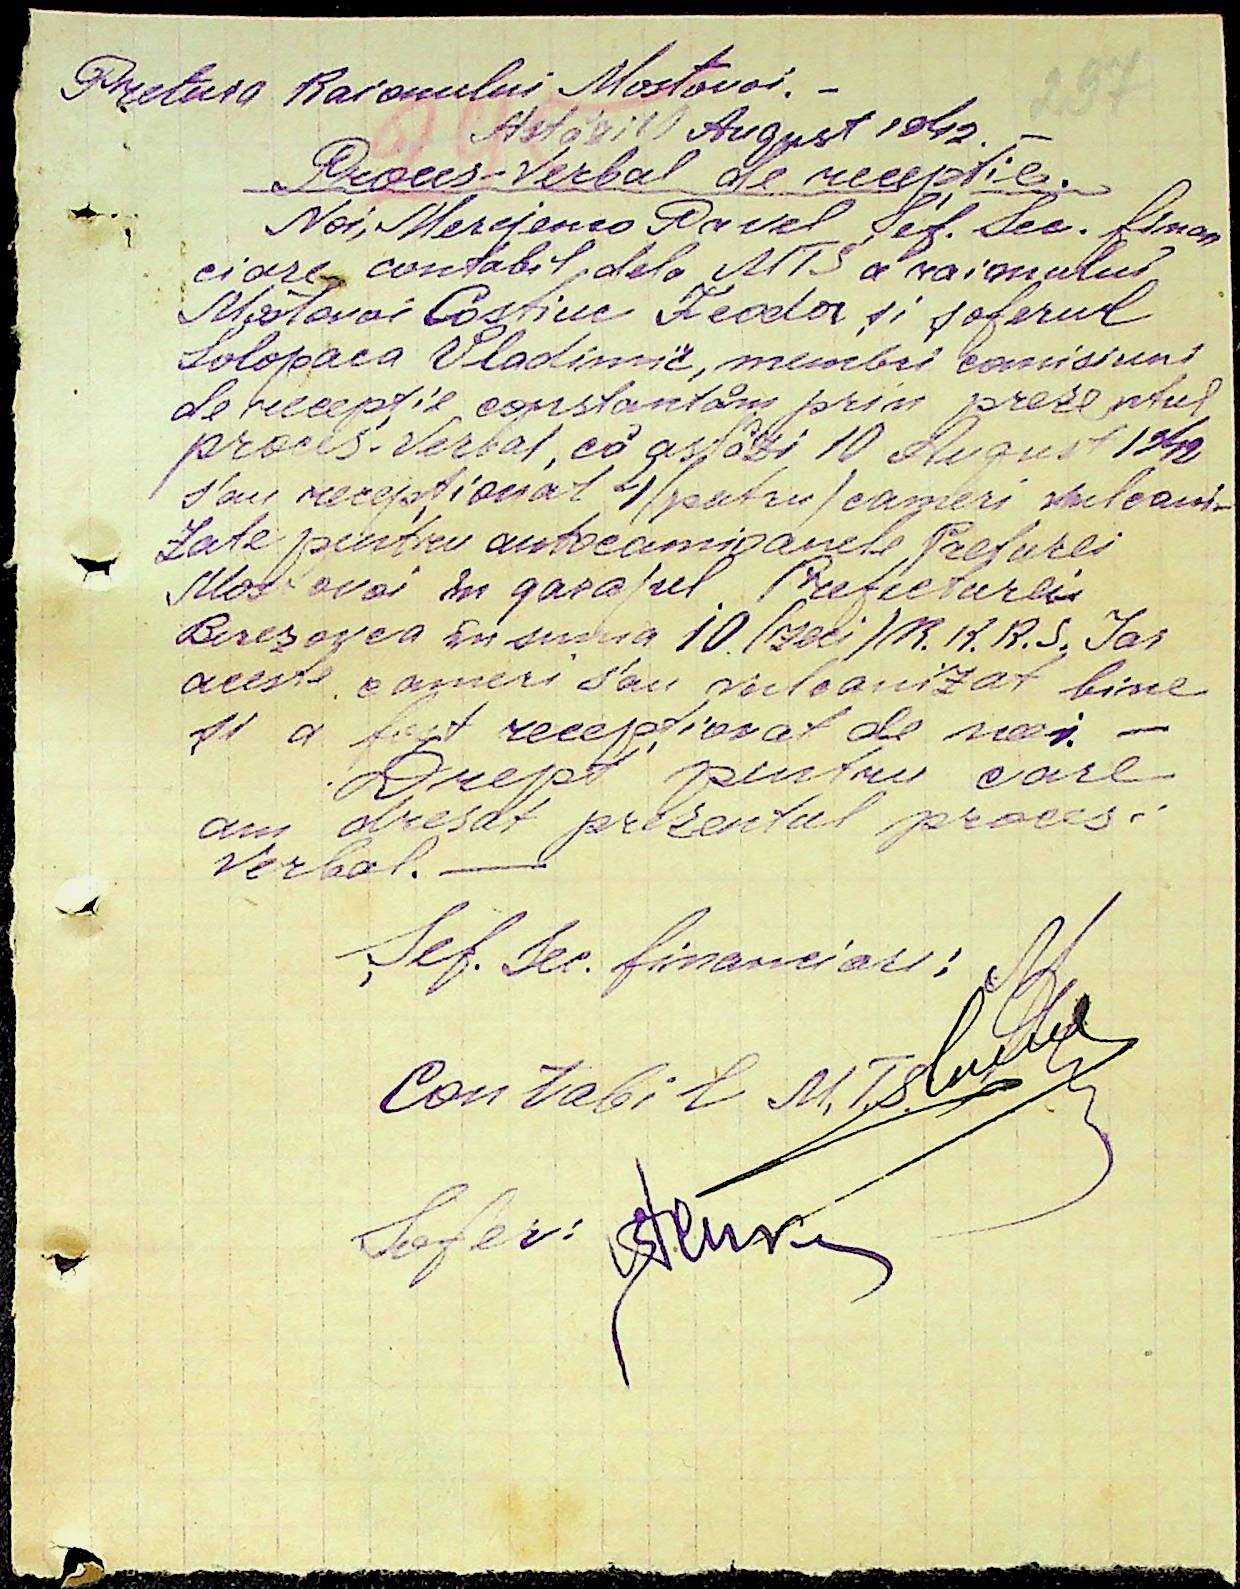 297
Pretura Raionului Mostovoi. -
Astăzi 10 August 1942. -
Proces-Verbal de recepție.
Noi, Merejenco Pavel Șef. Sec. finan
ciare, contabil dela MTS a raionului
Mostovoi Costiuc Teodor și șoferul
Solopaca Vladimir, membri comisiuni
de recepție constantăm prin prezentul
proces-Verbal, că astăzi 10 August 1942
s'au recepționat 4 (patru) cameri vulcani-
zate pentru autocamioanele Preturei
Mostovoi în garajul Prefecturei
Berezovca în suma 10. (zeci) R.K.R.S. Iar
aceste cameri s'au vulcanizat bine
și a fost recepționat de noi. -
Drept pentru care
am dresat prezentul proces-
Verbal. -
Șef. Sec. financiare:
Contabil M.T.S.
Șofer: